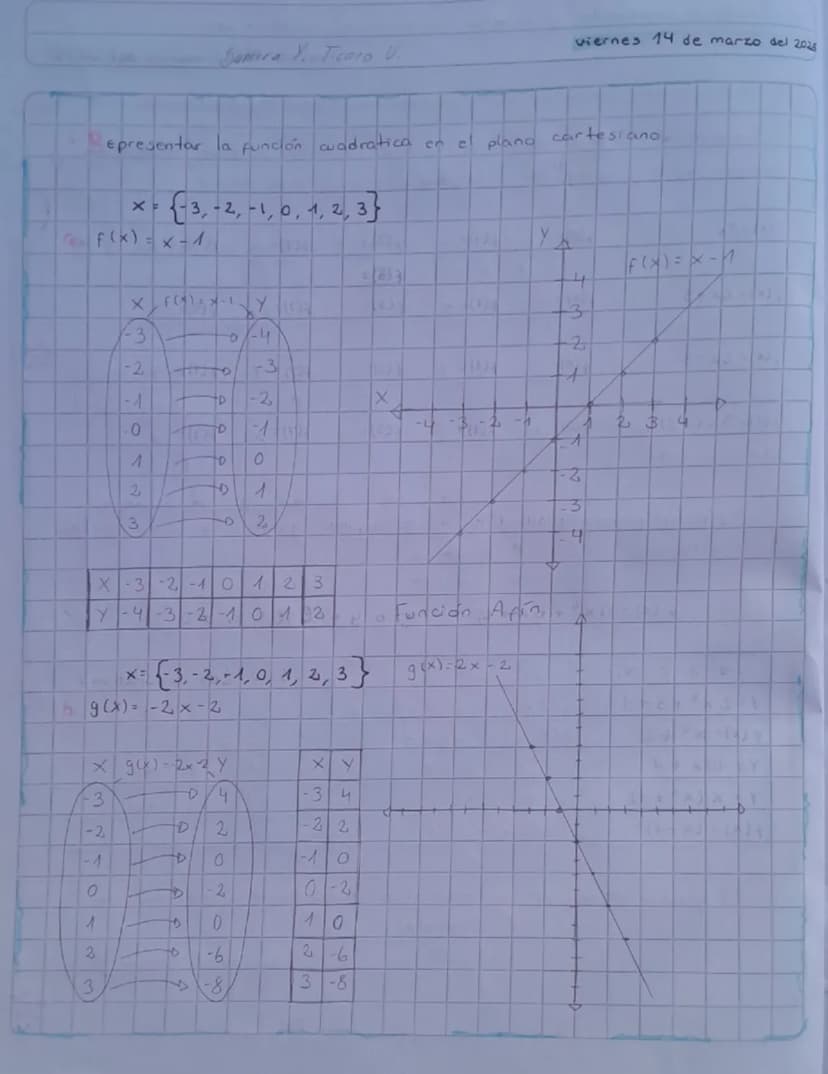 viernes 14 de marzo del 2025
Representar la función cuadratica en el plano cartesiano
x = {-3, -2, -1, 0, 1, 2, 3}
f(x) = x - 1
X f(x) = x-1 Y
-3 -4
-2 -3
-1 -2
0 -1
1 0
2 1
3 2
Y
f(x) = x - 1
4
3
2
1
X
-4 -3 -2 -1 1 2 3 4
-1
-2
-3
-4
X -3 -2 -1 0 1 2 3
Y -4 -3 -2 -1 0 1 2
Función Afin
x = {-3, -2, -1, 0, 1, 2, 3}
g(x) = -2x - 2
g(x) = 2x - 2
X g(x) = 2x-2 Y
-3 4
-2 2
-1 0
0 -2
1 0
2 -6
3 -8
X Y
-3 4
-2 2
-1 0
0 -2
1 0
2 -6
3 -8